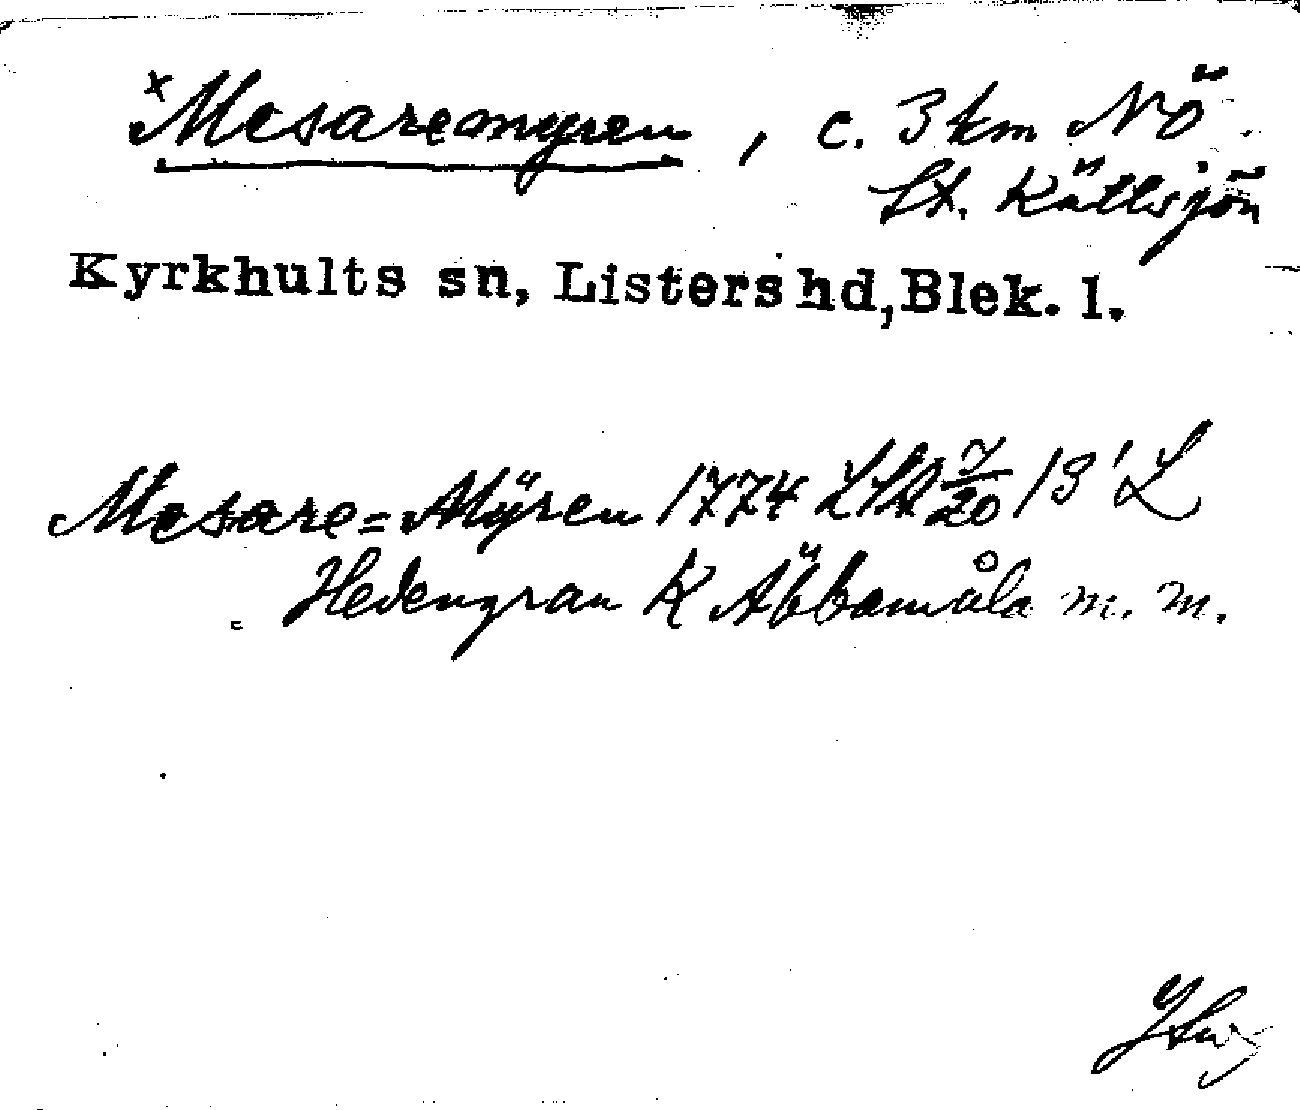 x Mesaremyren, c. 3 km NÖ.
St. Kättlsjön
Kyrkhults sn, Listers hd, Blek. l.
Mesare=Mÿren 1774 LSA 7/20 13' L
Hedengran K Äbbamåla m. m.